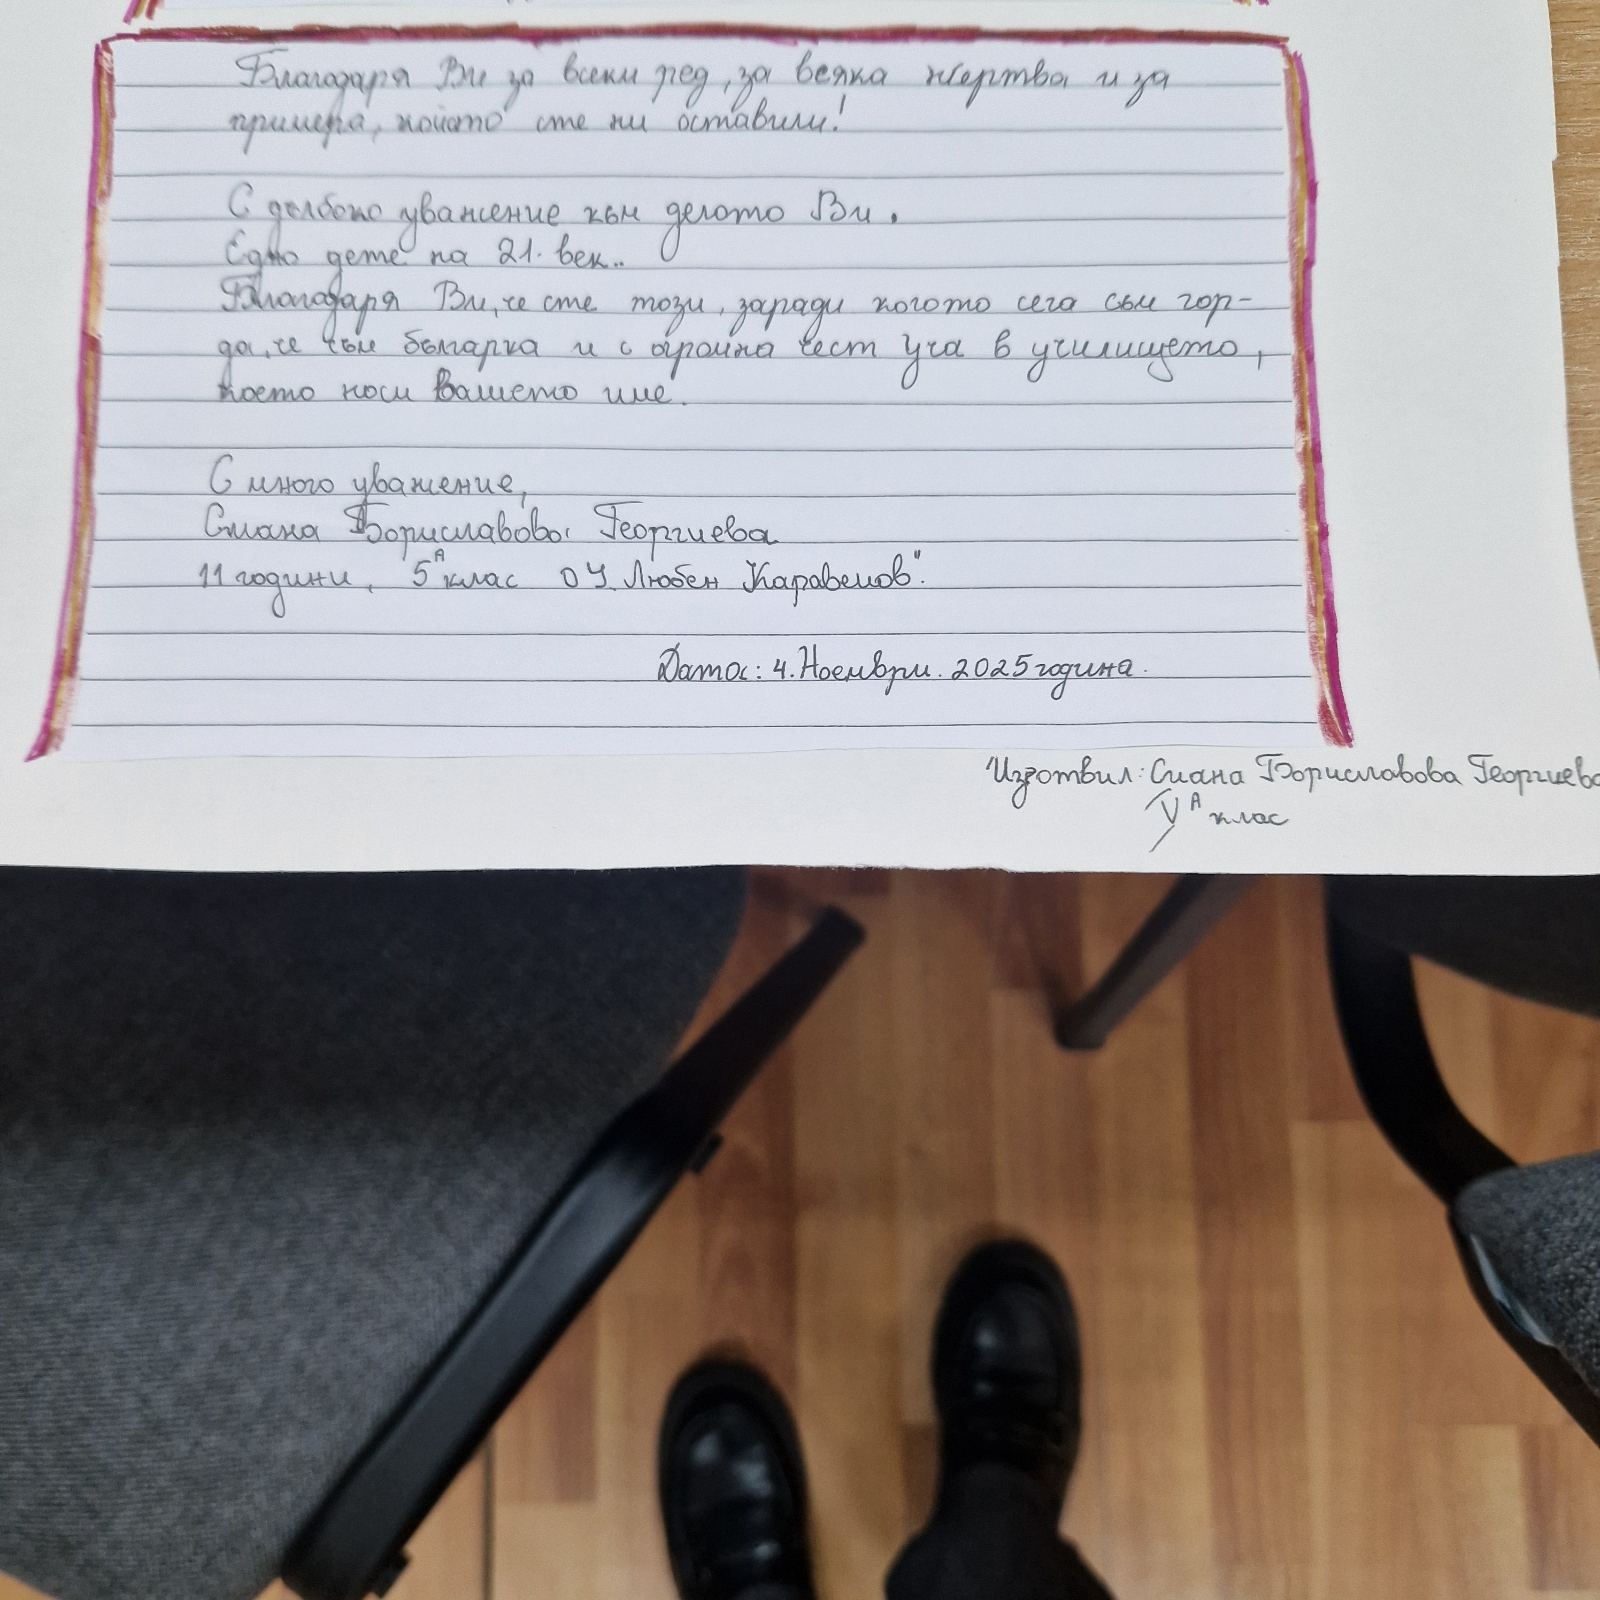 Благодаря Ви за всеки ред, за всяка жертва и за
примера, който сте ни оставили!
С дълбоко уважение към делото Ви.
Едно дете на 21. век..
Благодаря Ви, че сте този, заради когото сега съм гор-
да, че съм българка и с огромна чест уча в училището,
което носи Вашето име.
С много уважение,
Сиана Бориславова Георгиева
11 години, 5ᴬ клас ОУ „Любен Каравелов".
Дата: 4. Ноември. 2025 година.
Изготвил: Сиана Бориславова Георгиева
Vᴬ клас